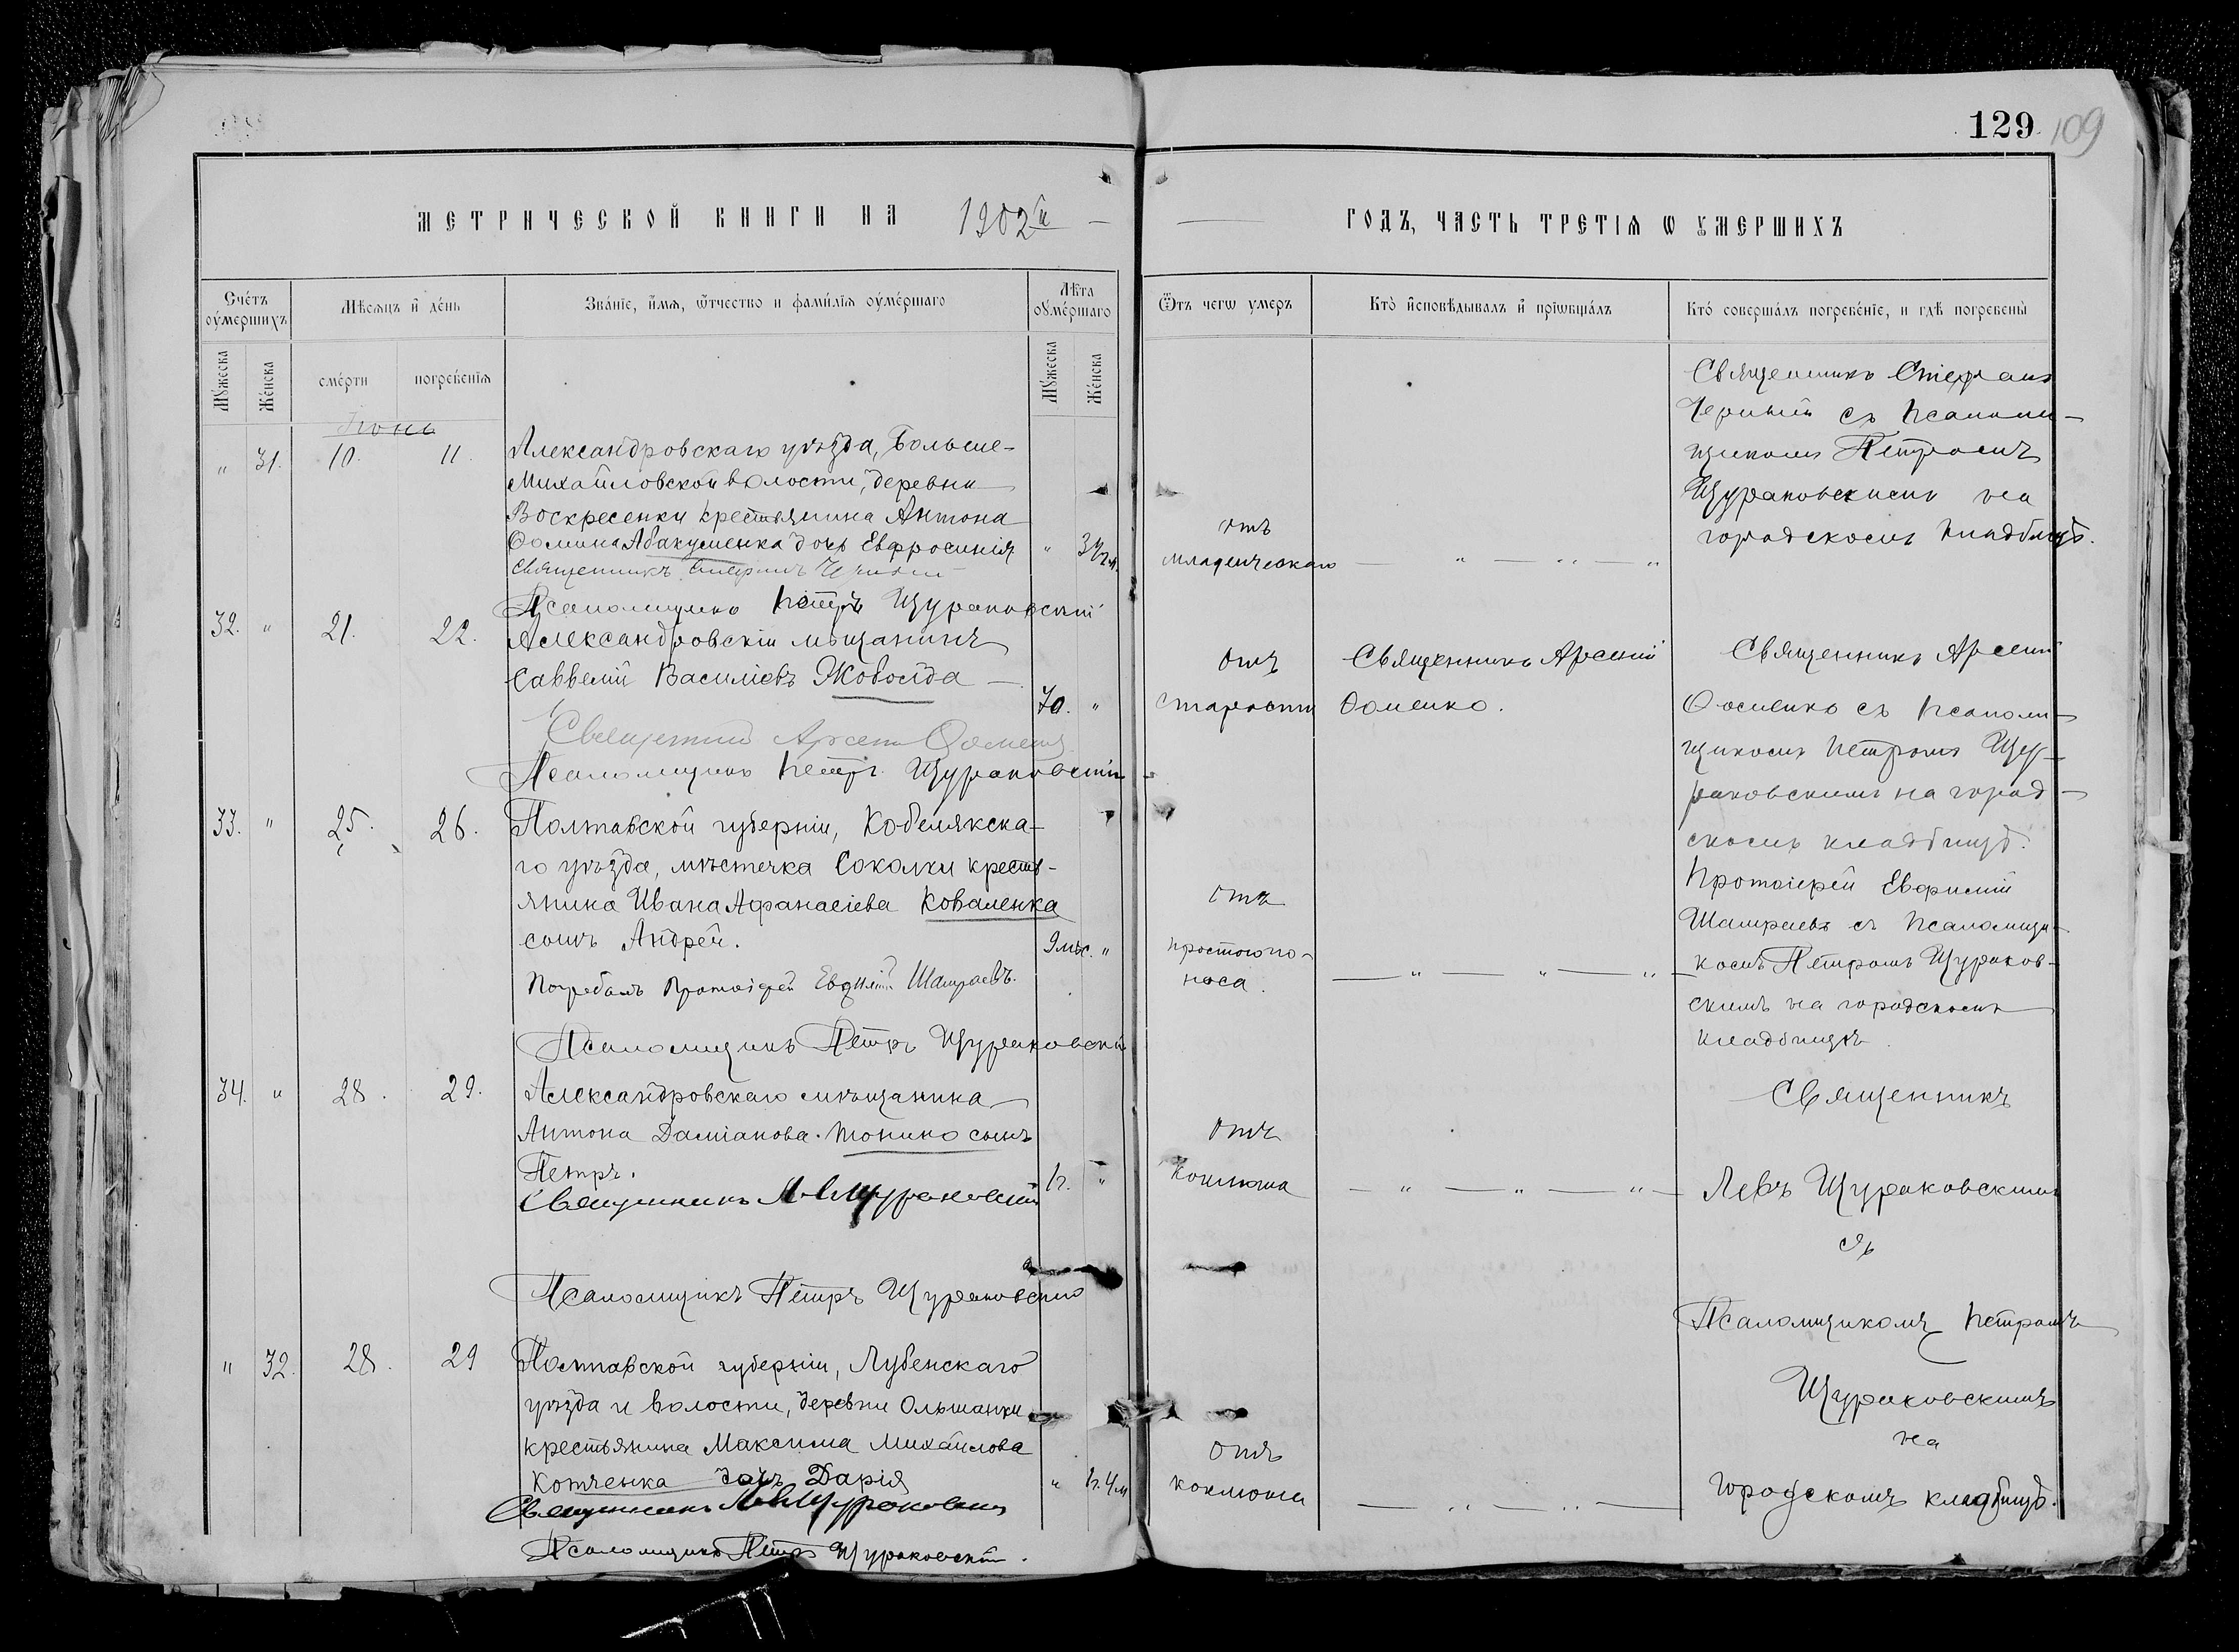 129 109
МЕТРИЧЕСКОЙ КНИГИ НА 1902й
ГОДЪ, ЧАСТЬ ТРЕТІѦ Ѡ УМЕРШИХЪ
Счетъ оумершихъ
Мѣсяцъ и день
Званіе, имя, ѿчество и фамилія оумершаго
Лѣта оумершаго
Ѿтъ чегѡ умеръ
Кто исповѣдывалъ и пріѡбщалъ
Кто совершалъ погребеніе, и гдѣ погребены
Мужеска
Женска
смерти
погребенія
Мужеска
Женска
Іюнь
„ 31. 10. 11.
Александровскаго уѣзда, Больше-
Михайловской волости, деревни
Воскресенки крестьянина Антона
Ѳомина Абакуменка дочь Евфросинія
Священникъ Стефанъ Черный
Псаломщикъ Петръ Щураковскій
отъ
младенческаго
Священникъ Стефанъ
Черный съ псаломщ-
щикомъ Петромъ
Щураковскимъ на
городскомъ кладбищѣ.
32. „ 21. 22.
Александровскій мѣщанинъ
Савватій Василіевъ Жовоѣда
70. „
Священникъ Арсеній Ѳоменко
Псаломщикъ Петръ Щураковскій
отъ
старости
Священникъ Арсеній
Ѳоменко.
Священникъ Арсеній
Ѳоменко съ псаломщ-
щикомъ Петромъ Щу-
раковскимъ на город-
скомъ кладбищѣ.
33. „ 25. 26.
Полтавской губерніи, Кобелякска-
го уѣзда, мѣстечка Соколки кресть-
янина Ивана Афанасіева Коваленка
сынъ Андрей.
9 мѣс. „
Погребалъ Протоіерей Евфимій Шатраевъ.
Псаломщикъ Петръ Щураковскій
отъ
простого по-
носа.
Протоіерей Евфимій
Шатраевъ съ псаломщи-
комъ Петромъ Щураков-
скимъ на городскомъ
кладбищѣ.
34. „ 28. 29.
Александровскаго мѣщанина
Антона Даміанова Тонино сынъ
Петръ.
1 г. „
Священникъ Л. Щураковскій
Псаломщикъ Петръ Щураковскій
отъ
коклюша
Священникъ
Левъ Щураковскій
съ
Псаломщикомъ Петромъ
Щураковскимъ
на
городскомъ кладбищѣ.
„ 32. 28. 29
Полтавской губерніи, Лубенскаго
уѣзда и волости, деревни Ольшанки
крестьянина Максима Михайлова
Котченка дочь Дарія
„ 1 г. 4 м
Священникъ Левъ Щураковскій
Псаломщикъ Петръ Щураковскій.
отъ
коклюша